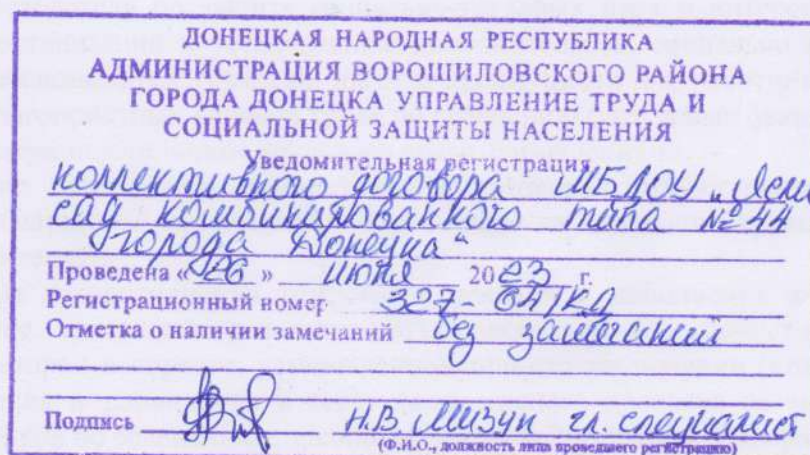 ДОНЕЦКАЯ НАРОДНАЯ РЕСПУБЛИКА
АДМИНИСТРАЦИЯ ВОРОШИЛОВСКОГО РАЙОНА
ГОРОДА ДОНЕЦКА УПРАВЛЕНИЕ ТРУДА И
СОЦИАЛЬНОЙ ЗАЩИТЫ НАСЕЛЕНИЯ
Уведомительная регистрация
коллективного договора МБДОУ „Ясли
сад комбинированного типа №44
города Донецка“
Проведена « 26 » июня 2023 г.
Регистрационный номер 327
Отметка о наличии замечаний без замечаний
Подпись Н.В. Мизун гл. специалист
(Ф.И.О., должность лица проведшего регистрацию)